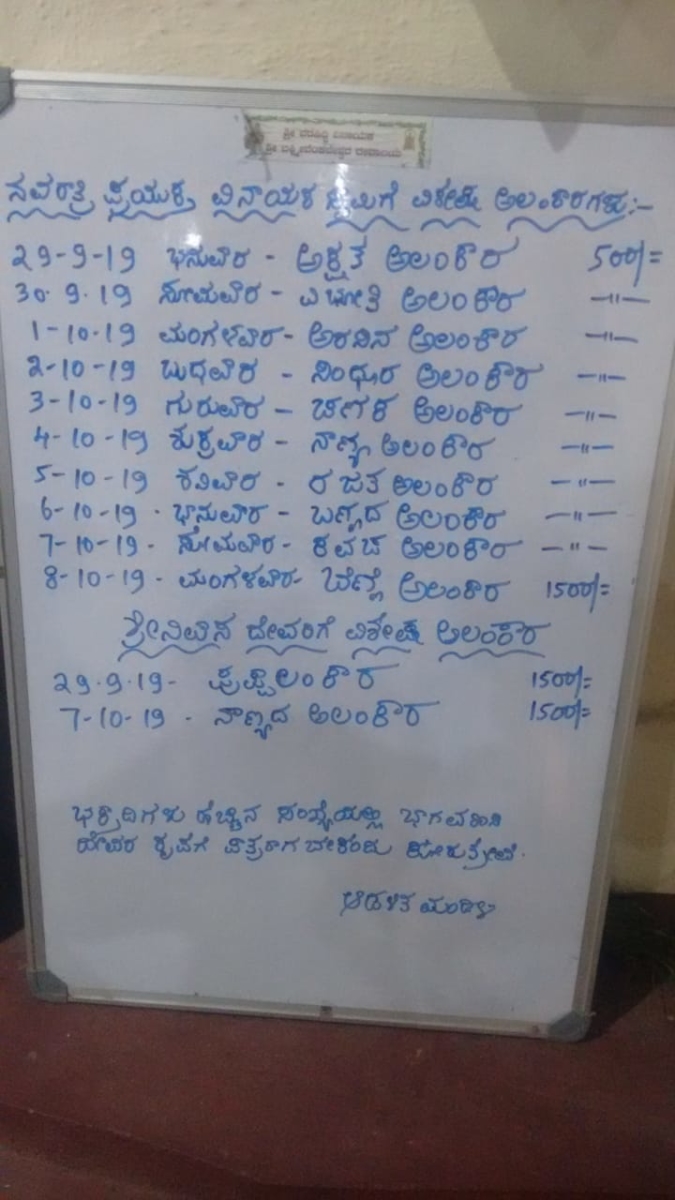 ಶ್ರೀ ವರಸಿದ್ಧಿ ವಿನಾಯಕ
ಶ್ರೀ ಲಕ್ಷ್ಮೀವೆಂಕಟೇಶ್ವರ ದೇವಾಲಯ
ನವರಾತ್ರಿ ಪ್ರಯುಕ್ತ ವಿನಾಯಕ ಸ್ವಾಮಿಗೆ ವಿಶೇಷ ಅಲಂಕಾರಗಳು:-
29-9-19 ಭಾನುವಾರ - ಅಕ್ಷತೆ ಅಲಂಕಾರ 500/=
30.9.19 ಸೋಮವಾರ - ವಿಭೂತಿ ಅಲಂಕಾರ —"—
1-10-19 ಮಂಗಳವಾರ - ಅರಿಶಿನ ಅಲಂಕಾರ —"—
2-10-19 ಬುಧವಾರ - ಸಿಂಧೂರ ಅಲಂಕಾರ —"—
3-10-19 ಗುರುವಾರ - ಅಲಂಕಾರ —"—
4-10-19 ಶುಕ್ರವಾರ - ನಾಣ್ಯ ಅಲಂಕಾರ —"—
5-10-19 ಶನಿವಾರ - ರಜತ ಅಲಂಕಾರ —"—
6-10-19 - ಭಾನುವಾರ - ಬಣ್ಣದ ಅಲಂಕಾರ —"—
7-10-19 - ಸೋಮವಾರ - ಕವಚ ಅಲಂಕಾರ —"—
8-10-19 - ಮಂಗಳವಾರ - ಬೆಣ್ಣೆ ಅಲಂಕಾರ 1500/=
ಶ್ರೀನಿವಾಸ ದೇವರಿಗೆ ವಿಶೇಷ ಅಲಂಕಾರ
29.9.19 - ಪುಷ್ಪಾಲಂಕಾರ 1500/=
7-10-19 - ನಾಣ್ಯದ ಅಲಂಕಾರ 1500/=
ಭಕ್ತಾದಿಗಳು ಹೆಚ್ಚಿನ ಸಂಖ್ಯೆಯಲ್ಲಿ ಭಾಗವಹಿಸಿ
ದೇವರ ಕೃಪೆಗೆ ಪಾತ್ರರಾಗ ಬೇಕೆಂದು ಕೋರುತ್ತೇವೆ.
ಆಡಳಿತ ಮಂಡಳಿ